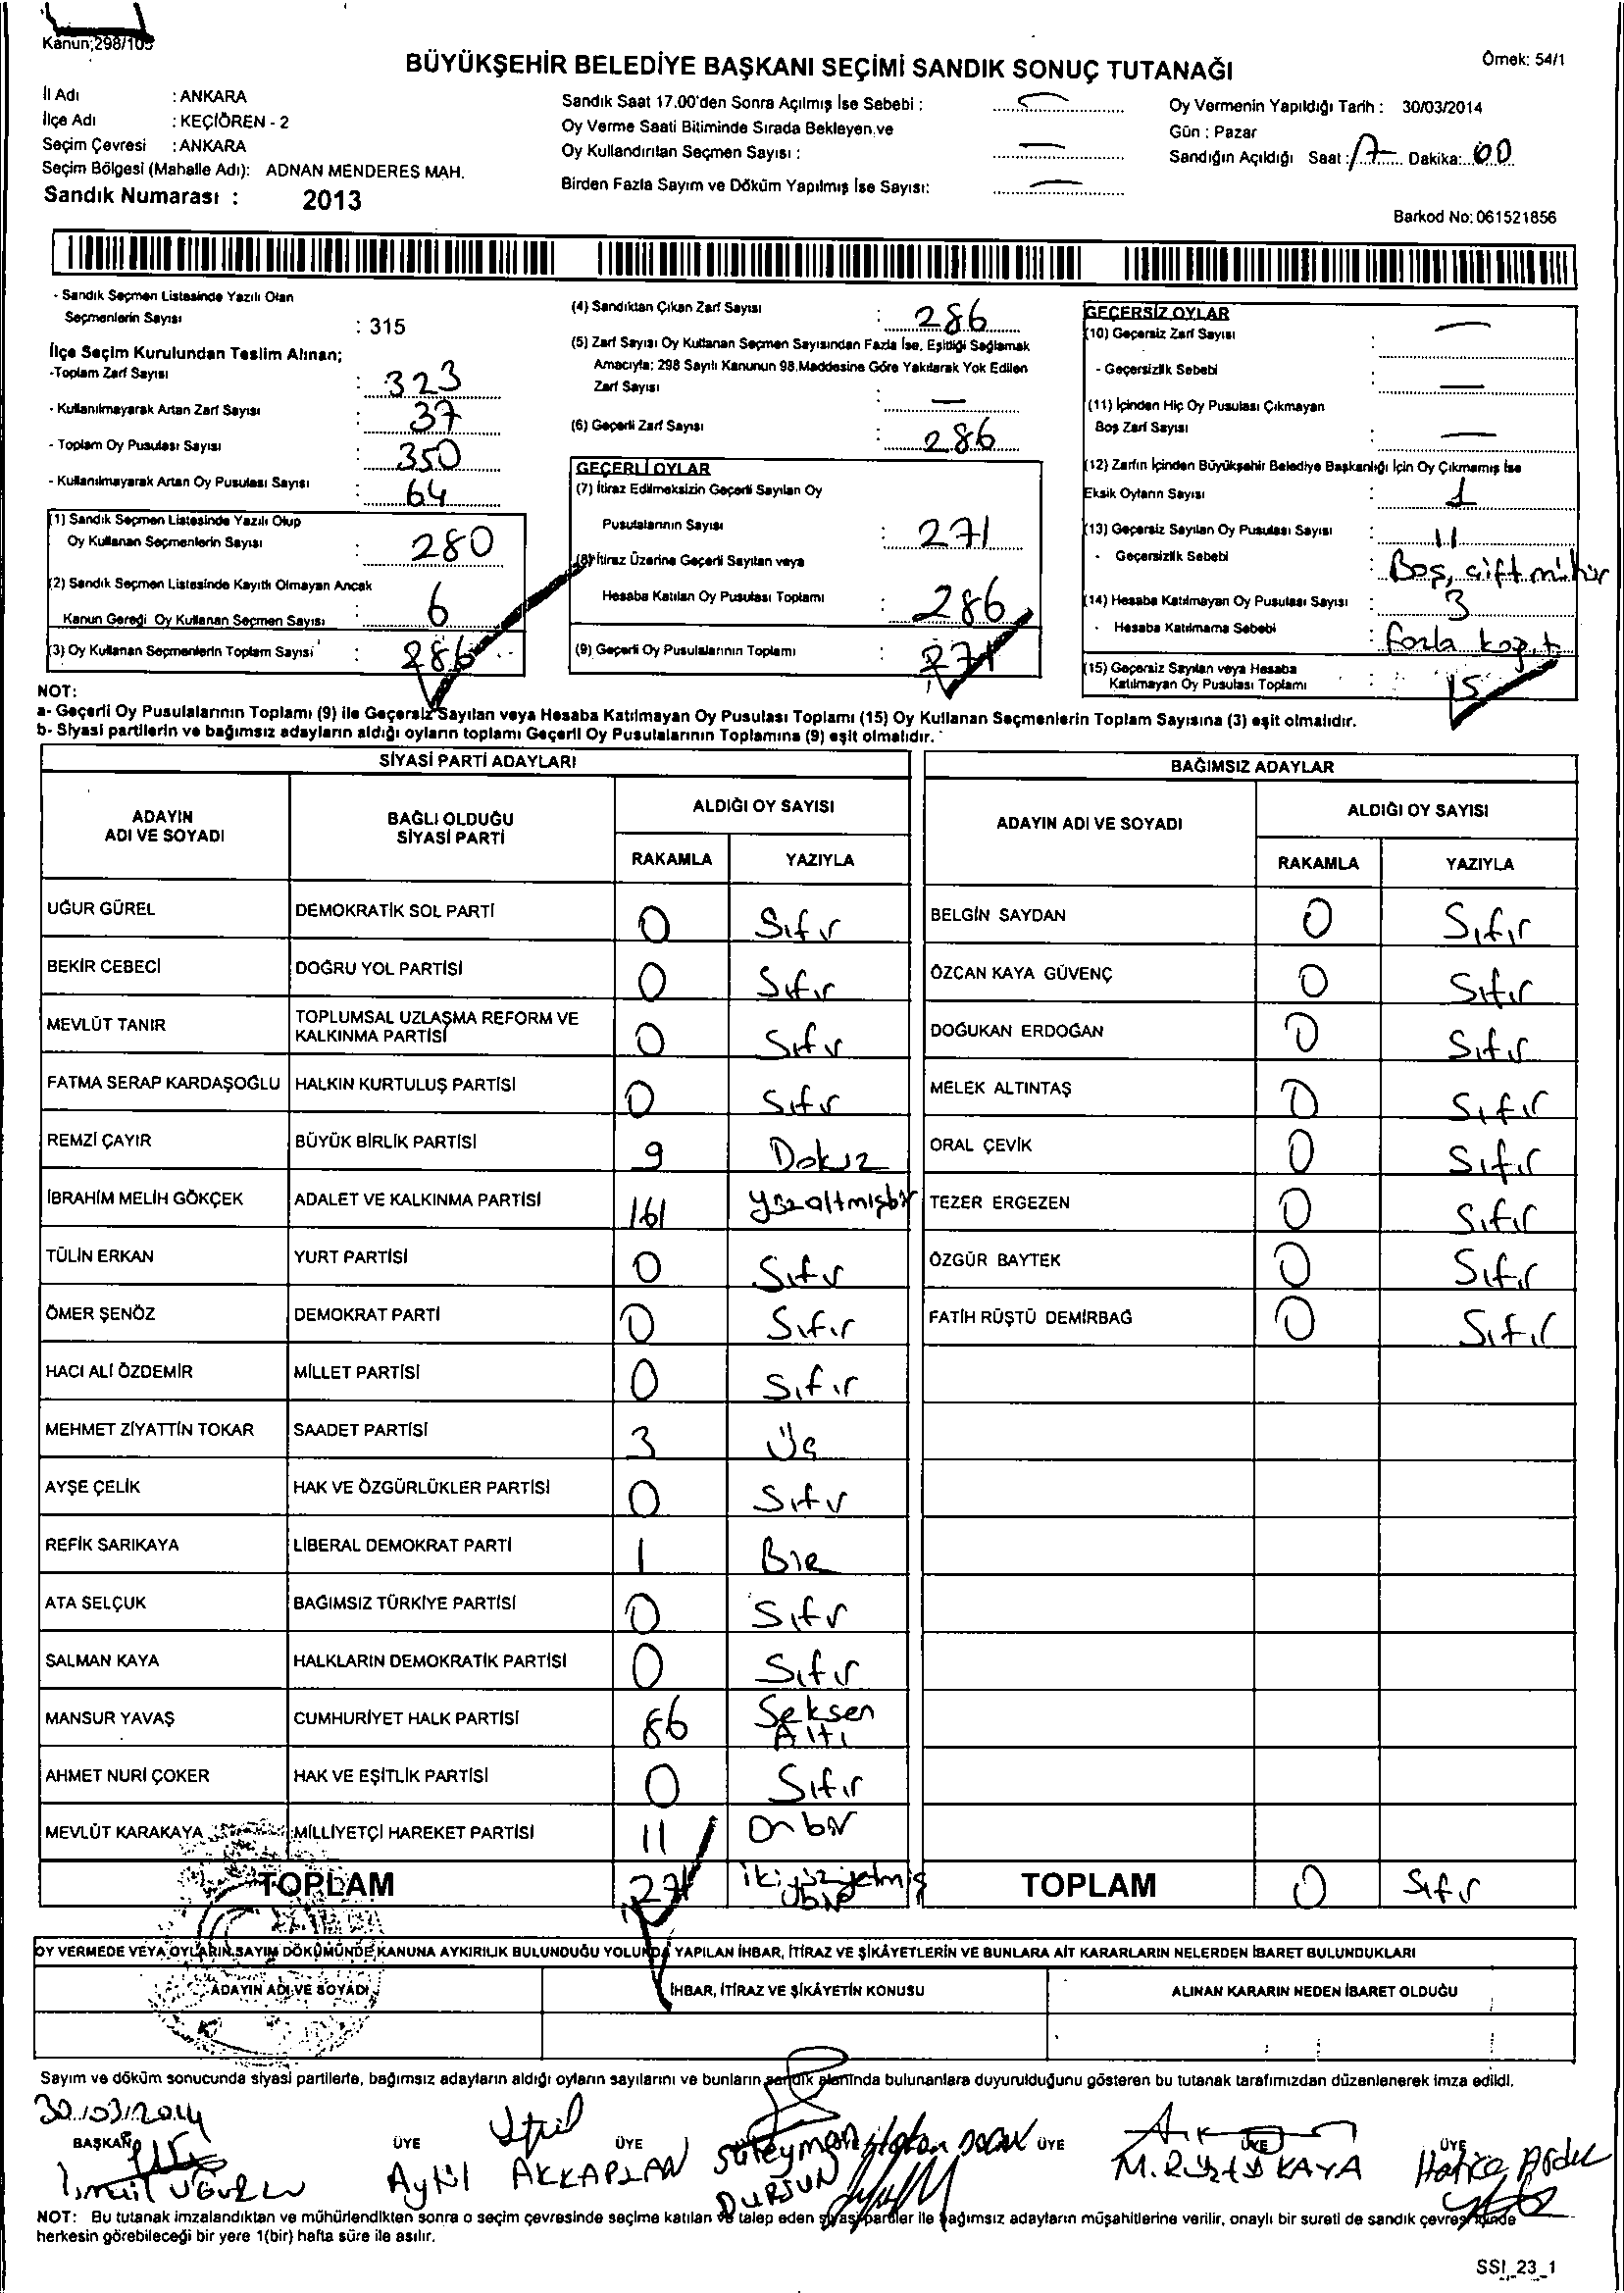 Kanun;298/105
BÜYÜKŞEHİR BELEDİYE BAŞKANI SEÇİMİ SANDIK SONUÇ TUTANAĞI
Örnek: 54/1
İl Adı : ANKARA
İlçe Adı : KEÇİÖREN - 2
Seçim Çevresi : ANKARA
Seçim Bölgesi (Mahalle Adı): ADNAN MENDERES MAH.
Sandık Numarası : 2013
Sandık Saat 17.00'den Sonra Açılmış İse Sebebi : —
Oy Verme Saati Bitiminde Sırada Bekleyen ve
Oy Kullandırılan Seçmen Sayısı : —
Birden Fazla Sayım ve Döküm Yapılmış İse Sayısı: —
Oy Vermenin Yapıldığı Tarih : 30/03/2014
Gün : Pazar
Sandığın Açıldığı Saat : 17 Dakika: 00
Barkod No: 061521856
- Sandık Seçmen Listesinde Yazılı Olan
Seçmenlerin Sayısı : 315
İlçe Seçim Kurulundan Teslim Alınan;
-Toplam Zarf Sayısı : 323
- Kullanılmayarak Artan Zarf Sayısı : 37
- Toplam Oy Pusulası Sayısı : 350
- Kullanılmayarak Artan Oy Pusulası Sayısı : 64
(1) Sandık Seçmen Listesinde Yazılı Olup
Oy Kullanan Seçmenlerin Sayısı : 280
(2) Sandık Seçmen Listesinde Kayıtlı Olmayan Ancak
Kanun Gereği Oy Kullanan Seçmen Sayısı : 6
(3) Oy Kullanan Seçmenlerin Toplam Sayısı : 286
(4) Sandıktan Çıkan Zarf Sayısı : 286
(5) Zarf Sayısı Oy Kullanan Seçmen Sayısından Fazla İse, Eşitliği Sağlamak
Amacıyla; 298 Sayılı Kanunun 98.Maddesine Göre Yakılarak Yok Edilen
Zarf Sayısı : —
(6) Geçerli Zarf Sayısı : 286
GEÇERLİ OYLAR
(7) İtiraz Edilmeksizin Geçerli Sayılan Oy
Pusulalarının Sayısı : 271
(8) İtiraz Üzerine Geçerli Sayılan veya
Hesaba Katılan Oy Pusulası Toplamı : 286
(9) Geçerli Oy Pusulalarının Toplamı : 271
GEÇERSİZ OYLAR
(10) Geçersiz Zarf Sayısı : —
- Geçersizlik Sebebi : —
(11) İçinden Hiç Oy Pusulası Çıkmayan
Boş Zarf Sayısı : —
(12) Zarfın İçinden Büyükşehir Belediye Başkanlığı İçin Oy Çıkmamış İse
Eksik Oyların Sayısı : 1
(13) Geçersiz Sayılan Oy Pusulası Sayısı : 11
- Geçersizlik Sebebi : Boş, çift mühür
(14) Hesaba Katılmayan Oy Pusulası Sayısı : 3
- Hesaba Katılmama Sebebi : fazla
(15) Geçersiz Sayılan veya Hesaba
Katılmayan Oy Pusulası Toplamı : 15
NOT:
a- Geçerli Oy Pusulalarının Toplamı (9) ile Geçersiz Sayılan veya Hesaba Katılmayan Oy Pusulası Toplamı (15) Oy Kullanan Seçmenlerin Toplam Sayısına (3) eşit olmalıdır.
b- Siyasi partilerin ve bağımsız adayların aldığı oyların toplamı Geçerli Oy Pusulalarının Toplamına (9) eşit olmalıdır.
SİYASİ PARTİ ADAYLARI
ADAYIN ADI VE SOYADI BAĞLI OLDUĞU SİYASİ PARTİ ALDIĞI OY SAYISI
RAKAMLA YAZIYLA
UĞUR GÜREL DEMOKRATİK SOL PARTİ 0 Sıfır
BEKİR CEBECİ DOĞRU YOL PARTİSİ 0 Sıfır
MEVLÜT TANIR TOPLUMSAL UZLAŞMA REFORM VE KALKINMA PARTİSİ 0 Sıfır
FATMA SERAP KARDAŞOĞLU HALKIN KURTULUŞ PARTİSİ 0 Sıfır
REMZİ ÇAYIR BÜYÜK BİRLİK PARTİSİ 9 Dokuz
İBRAHİM MELİH GÖKÇEK ADALET VE KALKINMA PARTİSİ 161 yüzaltmışbir
TÜLİN ERKAN YURT PARTİSİ 0 Sıfır
ÖMER ŞENÖZ DEMOKRAT PARTİ 0 Sıfır
HACI ALİ ÖZDEMİR MİLLET PARTİSİ 0 Sıfır
MEHMET ZİYATTİN TOKAR SAADET PARTİSİ 3 Üç
AYŞE ÇELİK HAK VE ÖZGÜRLÜKLER PARTİSİ 0 Sıfır
REFİK SARIKAYA LİBERAL DEMOKRAT PARTİ 1 Bir
ATA SELÇUK BAĞIMSIZ TÜRKİYE PARTİSİ 0 Sıfır
SALMAN KAYA HALKLARIN DEMOKRATİK PARTİSİ 0 Sıfır
MANSUR YAVAŞ CUMHURİYET HALK PARTİSİ 86 Seksen Altı
AHMET NURİ ÇOKER HAK VE EŞİTLİK PARTİSİ 0 Sıfır
MEVLÜT KARAKAYA MİLLİYETÇİ HAREKET PARTİSİ 11 Onbir
TOPLAM 271 ikiyüzyetmişbir
BAĞIMSIZ ADAYLAR
ADAYIN ADI VE SOYADI ALDIĞI OY SAYISI
RAKAMLA YAZIYLA
BELGİN SAYDAN 0 Sıfır
ÖZCAN KAYA GÜVENÇ 0 Sıfır
DOĞUKAN ERDOĞAN 0 Sıfır
MELEK ALTINTAŞ 0 Sıfır
ORAL ÇEVİK 0 Sıfır
TEZER ERGEZEN 0 Sıfır
ÖZGÜR BAYTEK 0 Sıfır
FATİH RÜŞTÜ DEMİRBAĞ 0 Sıfır
TOPLAM 0 Sıfır
OY VERMEDE VEYA OYLARIN SAYIM DÖKÜMÜNDE KANUNA AYKIRILIK BULUNDUĞU YOLUNDA YAPILAN İHBAR, İTİRAZ VE ŞİKÂYETLERİN VE BUNLARA AİT KARARLARIN NELERDEN İBARET BULUNDUKLARI
ADAYIN ADI VE SOYADI İHBAR, İTİRAZ VE ŞİKÂYETİN KONUSU ALINAN KARARIN NEDEN İBARET OLDUĞU
Sayım ve döküm sonucunda siyasi partilerle, bağımsız adayların aldığı oyların sayılarını ve bunların sandık alanında bulunanlara duyurulduğunu gösteren bu tutanak tarafımızdan düzenlenerek imza edildi.
30/03/2014
BAŞKAN ÜYE ÜYE ÜYE ÜYE ÜYE
İsmail UĞURLU Aytül AKKAPLAN Süleyman DURSUN M. Rüştü KAYA Hatice
NOT: Bu tutanak imzalandıktan ve mühürlendikten sonra o seçim çevresinde seçime katılan ve talep eden siyasi partiler ile bağımsız adayların müşahitlerine verilir, onaylı bir sureti de sandık çevresi içinde
herkesin görebileceği bir yere 1(bir) hafta süre ile asılır.
SSI_23_1